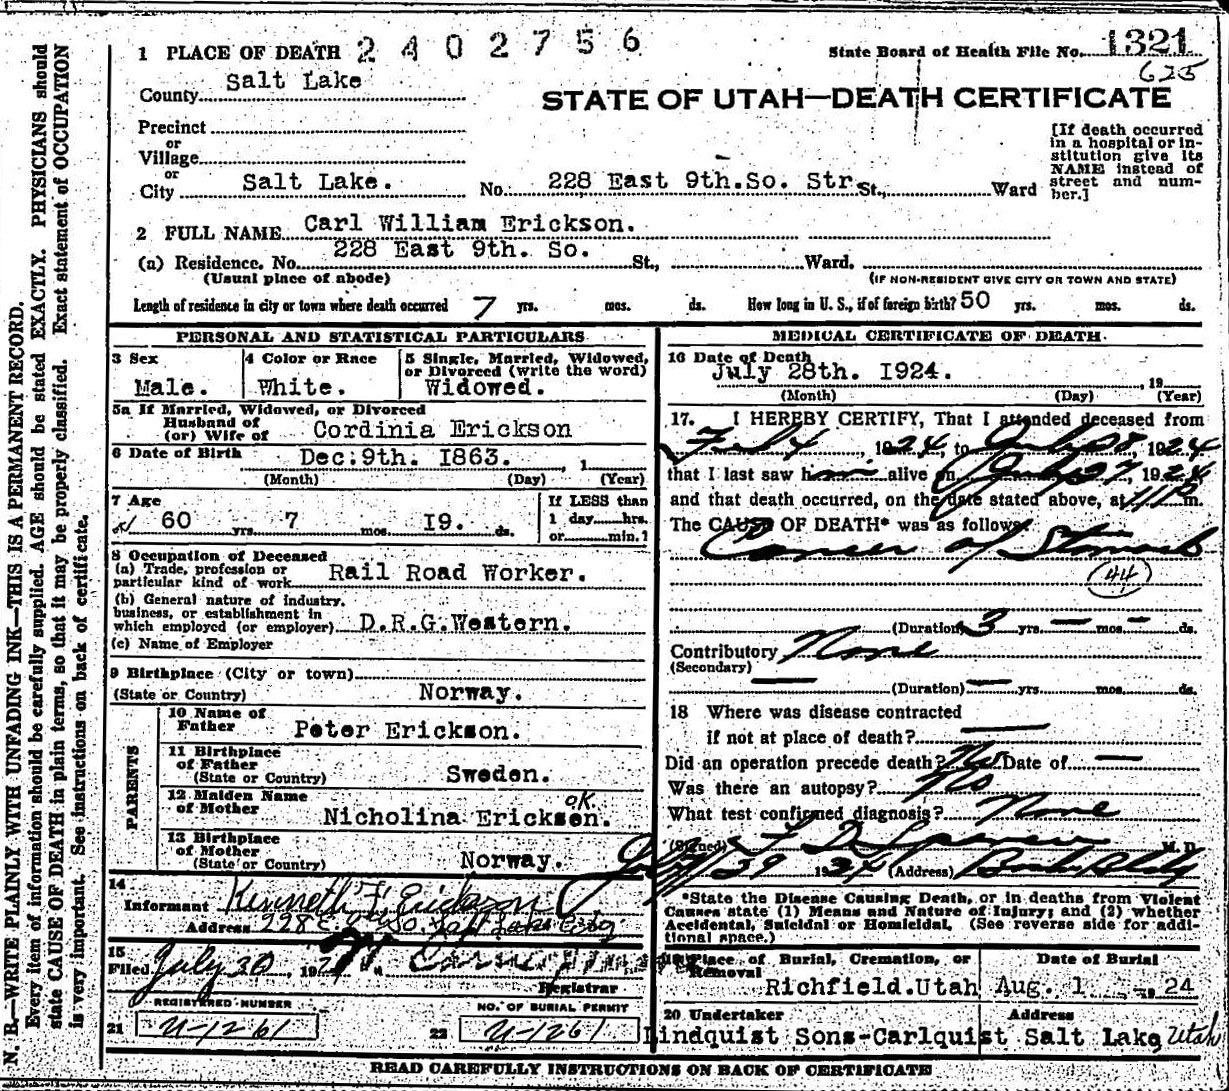 1 PLACE OF DEATH 2402756
State Board of Health File No. 1321
625
County Salt Lake
STATE OF UTAH—DEATH CERTIFICATE
Precinct
or
Village
or
City Salt Lake. No. 228 East 9th.So. Str. St., Ward
[If death occurred
in a hospital or in-
stitution give its
NAME instead of
street and num-
ber.]
2 FULL NAME Carl William Erickson.
(a) Residence. No. 228 East 9th. So. St., Ward.
(Usual place of abode)
(IF NON-RESIDENT GIVE CITY OR TOWN AND STATE)
Length of residence in city or town where death occurred 7 yrs. mos. ds. How long in U. S., if of foreign birth? 50 yrs. mos. ds.
PERSONAL AND STATISTICAL PARTICULARS
3 Sex
Male.
4 Color or Race
White.
5 Single, Married, Widowed,
or Divorced (write the word)
Widowed.
5a If Married, Widowed, or Divorced
Husband of
(or) Wife of Cordinia Erickson
6 Date of Birth Dec.9th. 1863. , 1
(Month) (Day) (Year)
7 Age
60 yrs. 7 mos. 19. ds.
If LESS than
1 day......hrs.
or......min.?
8 Occupation of Deceased
(a) Trade, profession or
particular kind of work Rail Road Worker.
(b) General nature of industry,
business, or establishment in
which employed (or employer) D.R.G.Western.
(c) Name of Employer
9 Birthplace (City or town)
(State or Country) Norway.
PARENTS
10 Name of
Father Peter Erickson.
11 Birthplace
of Father
(State or Country) Sweden.
12 Maiden Name
of Mother Nicholina Erickson. OK.
13 Birthplace
of Mother
(State or Country) Norway.
14
Informant Kenneth F. Erickson
Address 228 E. 9th So. Salt Lake City
15
Filed July 30, 192
Registrar
REGISTERED NUMBER
21 U-1261
NO. OF BURIAL PERMIT
22 U-1261
MEDICAL CERTIFICATE OF DEATH
16 Date of Death
July 28th. 1924. , 19
(Month) (Day) (Year)
17. I HEREBY CERTIFY, That I attended deceased from
Feb 4, 1924, to July 28, 1924
that I last saw him alive on July 27, 1924
and that death occurred, on the date stated above, at 11 P m.
The CAUSE OF DEATH* was as follows:
Cancer of Stomach
44
(Duration) 3 yrs. — mos. — ds.
Contributory None
(Secondary)
— (Duration) — yrs. mos. ds.
18 Where was disease contracted
if not at place of death? —
Did an operation precede death? No Date of —
Was there an autopsy? No
What test confirmed diagnosis? None
(Signed) Spencer M. D.
July 29 1924 (Address) Boston Bldg
*State the Disease Causing Death, or in deaths from Violent
Causes state (1) Means and Nature of Injury; and (2) whether
Accidental, Suicidal or Homicidal. (See reverse side for addi-
tional space.)
19 Place of Burial, Cremation, or
Removal
Richfield.Utah
Date of Burial
Aug. 1 19 24
20 Undertaker
Lindquist Sons-Carlquist
Address
Salt Lake, Utah
READ CAREFULLY INSTRUCTIONS ON BACK OF CERTIFICATE
N. B.—WRITE PLAINLY WITH UNFADING INK—THIS IS A PERMANENT RECORD.
Every item of information should be carefully supplied. AGE should be stated EXACTLY. PHYSICIANS should
state CAUSE OF DEATH in plain terms, so that it may be properly classified. Exact statement of OCCUPATION
is very important. See instructions on back of certificate.